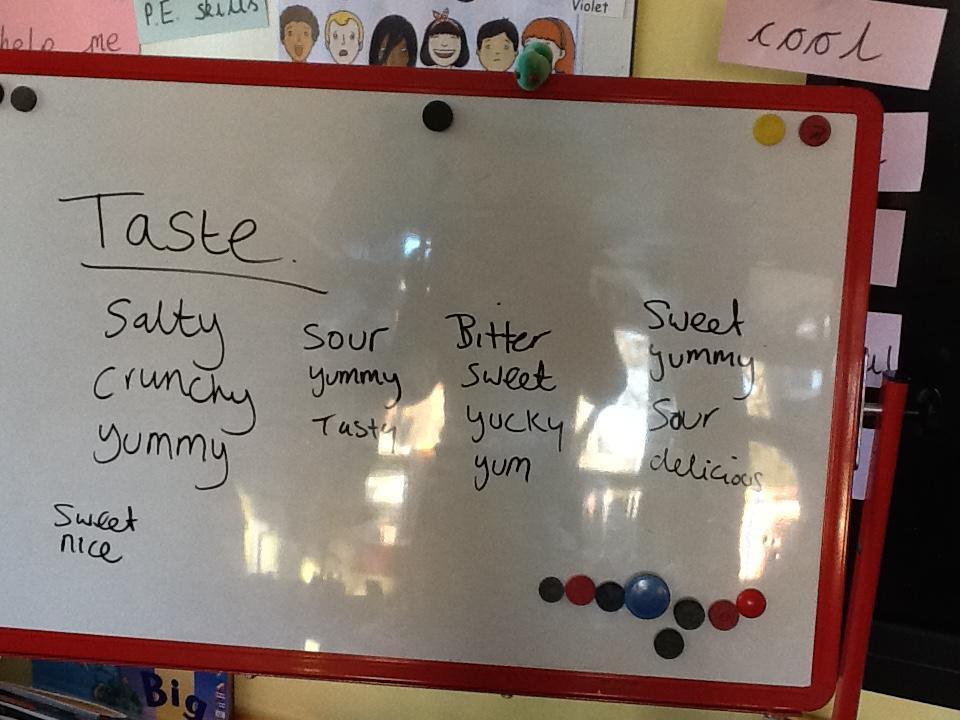 help me
P.E. skills
Violet
cool
Taste.
Salty
Crunchy
yummy
Sweet
nice
Sour
yummy
Tasty
Bitter
Sweet
yucky
yum
Sweet
yummy
Sour
delicious
Big